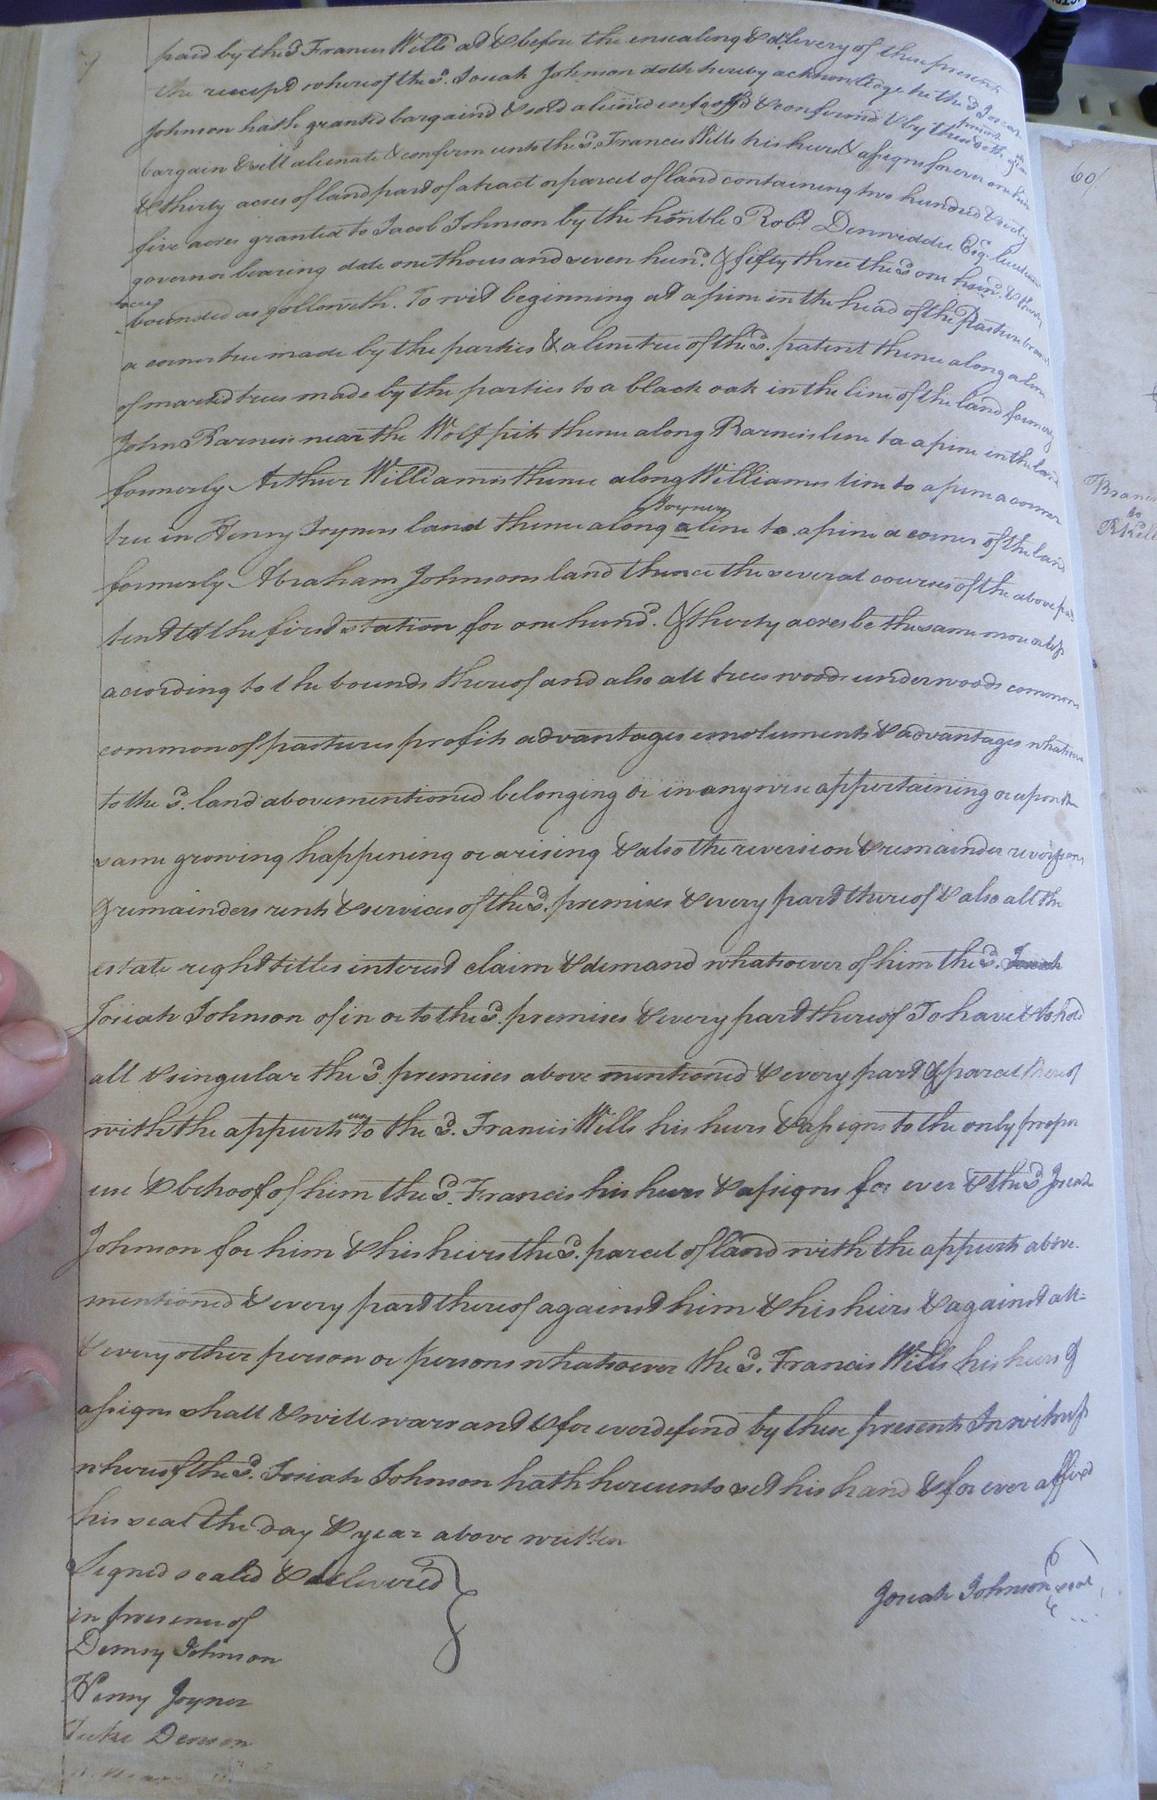 paid by the sd Francis Wills at & before the ensealing & delivery of these presents
the receipt whereof the sd. Josiah Johnson doth hereby acknowledge he the sd Josiah
Johnson hath granted bargaind & sold aliened enfeoff'd & confirmd & by these presents doth
bargain & sell alienate & confirm unto the sd. Francis Wills his heirs & assigns forever one hund
& thirty acres of land part of a tract or parcel of land containing two hundred &
five acres granted to Jacob Johnson by the honble Robt. Denweddie Esqr. lieutenant
governor bearing date one thousand seven hund. & fifty three the sd one hund. & thirty
acres
bounded as followeth. To wit beginning at a pine in the head of the Pasture branch
a corner tree made by the parties & a line tree of the sd. patent thence along a line
of marked trees made by the parties to a black oak in the line of the land formerly
John Barnes's near the Wolf pit thence along Barnes's line to a pine in the land
formerly Arthur Williams's thence along Williams line to a pine a corner
tree in Henry Joyners land thence along a Joyners line to a pine a corner of the land
formerly Abraham Johnsons land thence the several courses of the above pa
tent to the first station for one hund. & thirty acres be the same more or less
according to the bounds thereof and also all trees woods underwoods commons
common of pastures profits advantages emoluments & advantages whatsoever
to the sd. land abovementioned belonging or in any wise appertaining or upon the
same growing happening or arising & also the reversion & remainder reversions
& remainders rents & services of the sd. premises & every part thereof & also all the
estate right titles interest claim & demand whatsoever of him the sd. Josiah
Josiah Johnson of in or to the sd. premises & every part thereof To have & to hold
all & singular the sd. premises above mentioned & every part & parcel thereof
with the appurts unto the sd. Francis Wills his heirs & assigns to the only proper
use & behoof of him the sd. Francis his heirs & assigns for ever & the sd Josiah
Johnson for him & his heirs the sd. parcel of land with the appurts above
mentioned & every part thereof against him & his heirs & against all
& every other person or persons whatsoever the sd. Francis Wills his heirs &
assigns shall & will warrant & for ever defend by these presents In witness
whereof the sd. Josiah Johnson hath hereunto set his hand & for ever affixed
his seal the day & year above written
Signed sealed & delivered
in presence of
Josiah Johnson seal
Demsy Johnson
Henry Joyner
Denson
60
to